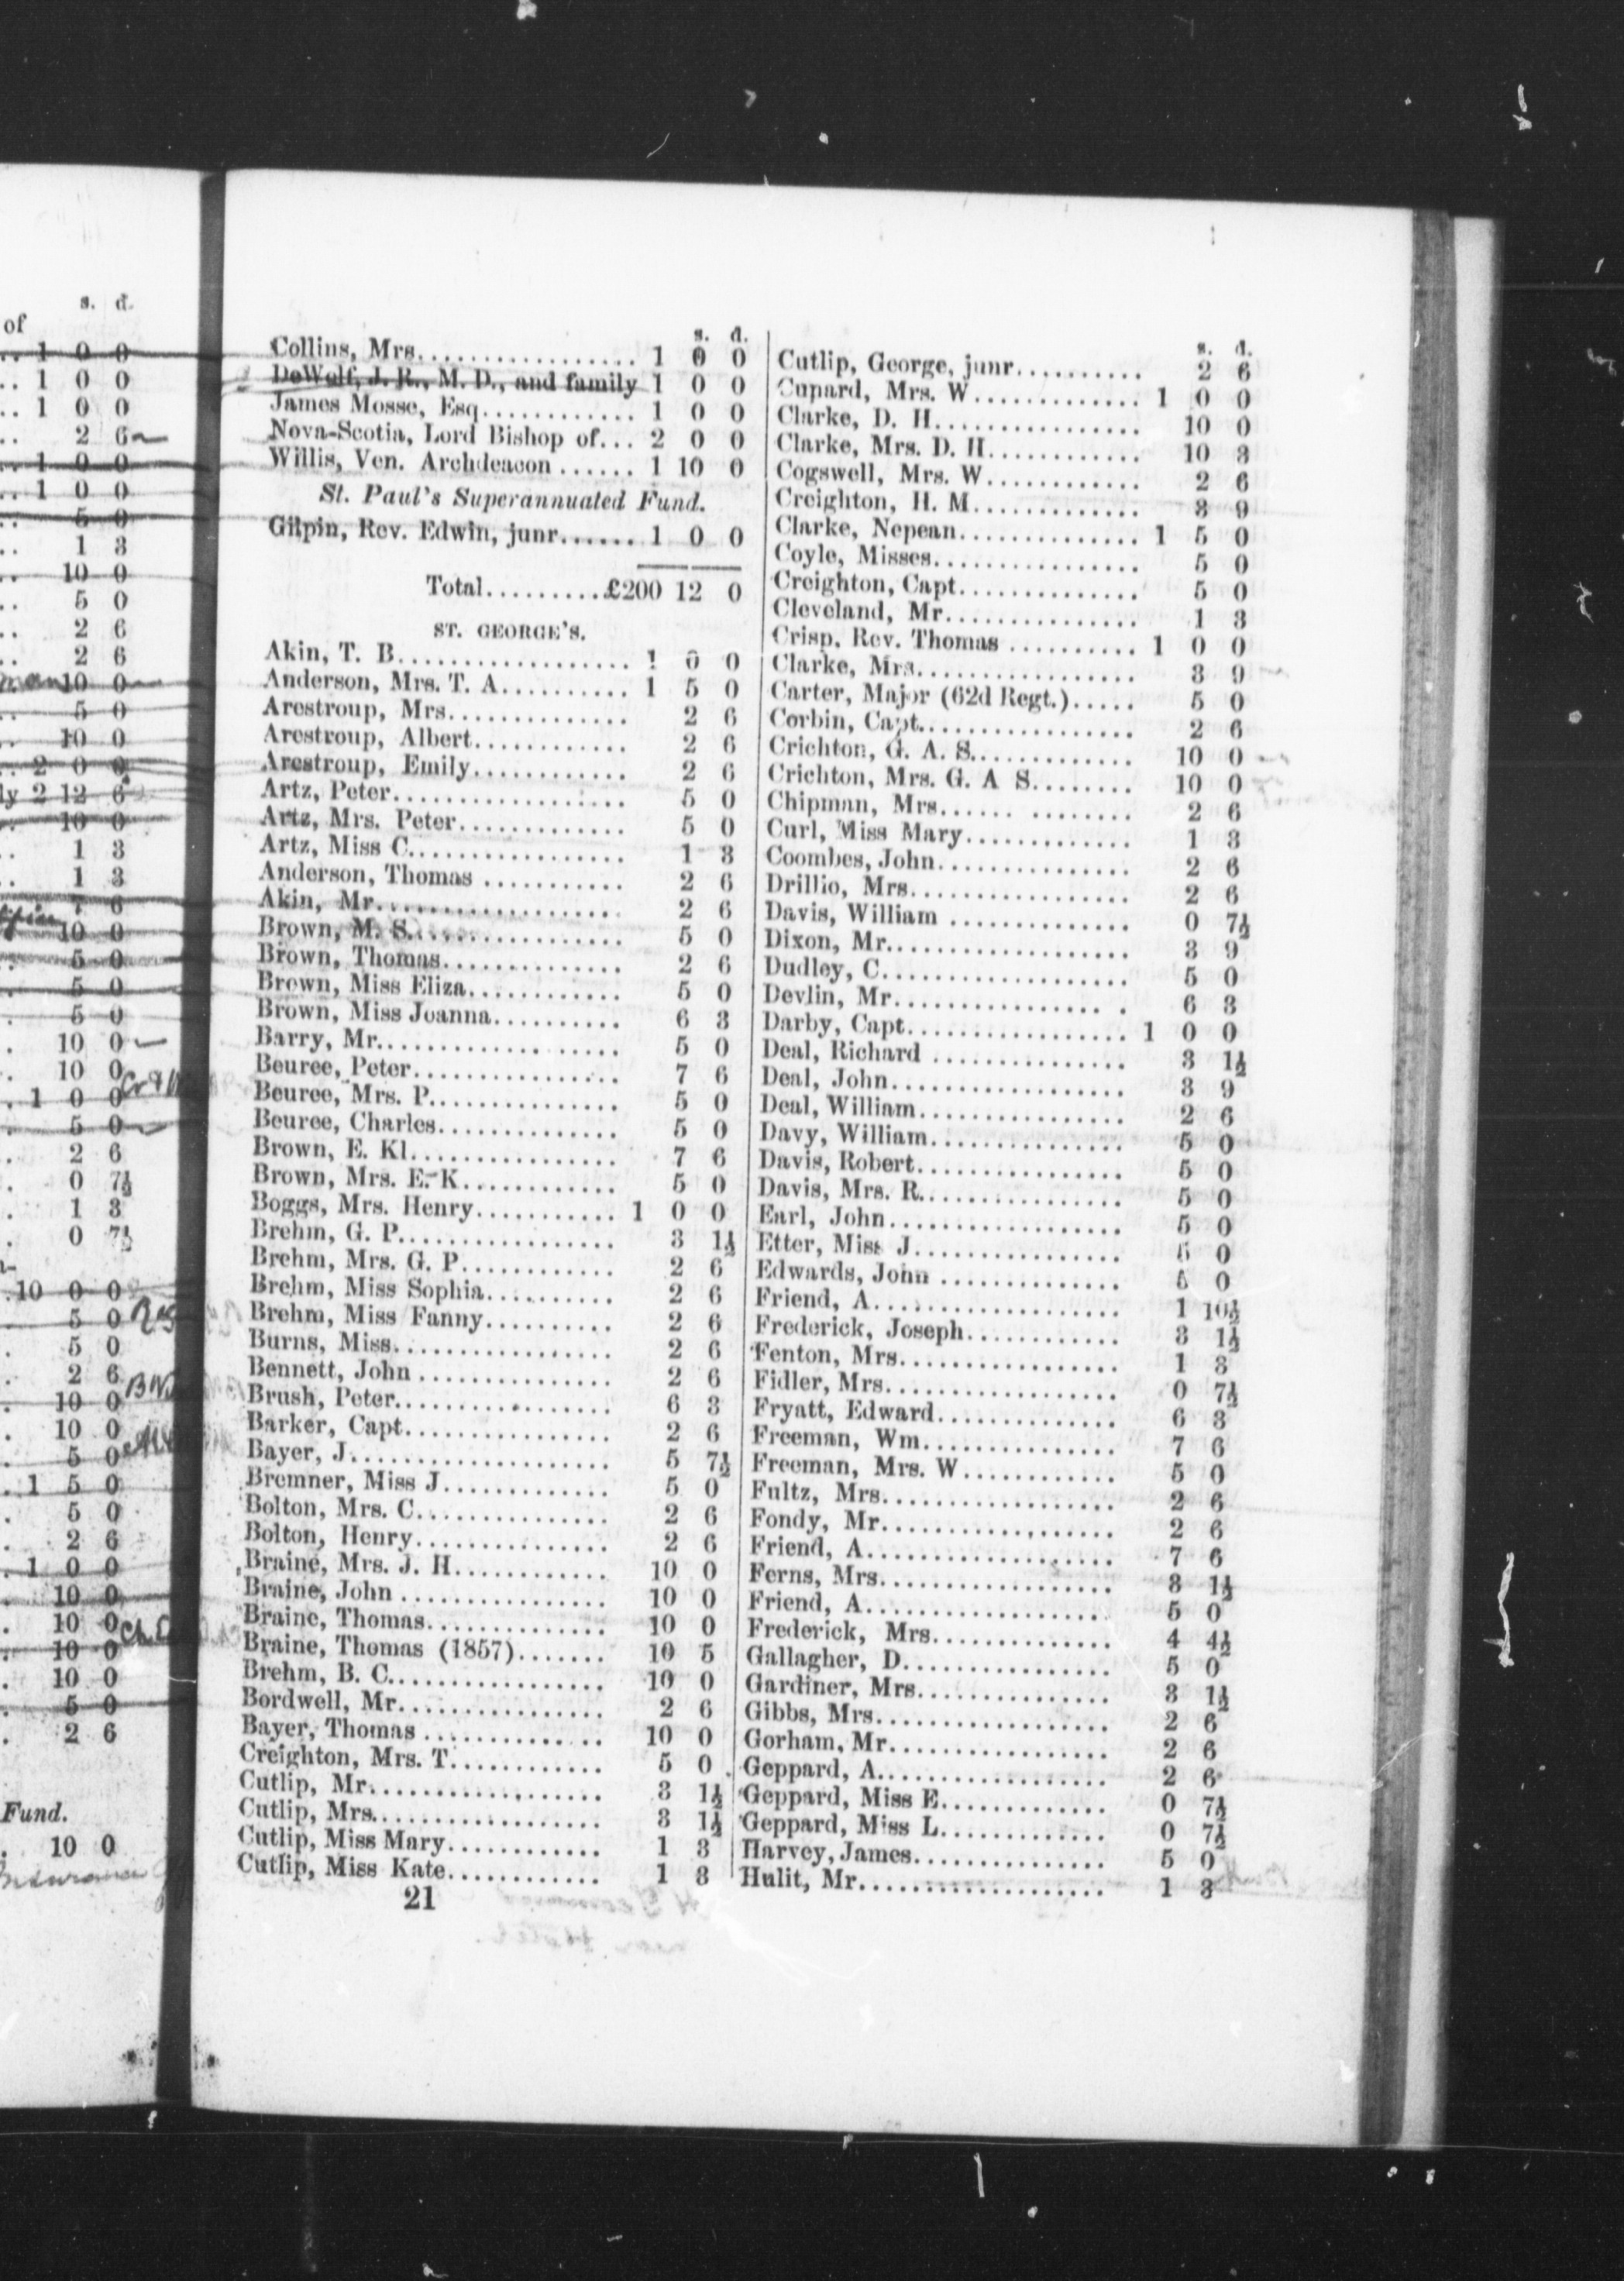 s. d.
of
.. 1 0 0
.. 1 0 0
.. 1 0 0
.. 2 6
.. 1 0 0
.. 1 0 0
.. 5 0
.. 1 3
.. 10 0
.. 5 0
.. 2 6
.. 2 6
10 0
.. 5 0
.. 10 0
.. 2 0 0
ly 2 12 6
.. 10 0
.. 1 3
.. 1 3
7 6
10 0
.. 5 0
. 5 0
. 5 0
. 10 0
. 10 0
. 1 0 0
. 5 0
. 2 6
. 0 7½
. 1 3
. 0 7½
.10 0 0
. 5 0
. 5 0
. 2 6
. 10 0
. 10 0
. 5 0
. 1 5 0
. 5 0
. 2 6
. 1 0 0
. 10 0
. 10 0
. 10 0
. 10 0
. 5 0
. 2 6
Fund.
. 10 0
s. d.
Collins, Mrs................. 1 0 0
DeWolf, J. R., M. D., and family 1 0 0
James Mosse, Esq............ 1 0 0
Nova-Scotia, Lord Bishop of... 2 0 0
Willis, Ven. Archdeacon ...... 1 10 0
St. Paul's Superannuated Fund.
Gilpin, Rev. Edwin, junr...... 1 0 0
Total.........£200 12 0
ST. GEORGE'S.
Akin, T. B.................. 1 0 0
Anderson, Mrs. T. A.......... 1 5 0
Arestroup, Mrs.............. 2 6
Arestroup, Albert............ 2 6
Arestroup, Emily............ 2 6
Artz, Peter.................. 5 0
Artz, Mrs. Peter............. 5 0
Artz, Miss C................. 1 3
Anderson, Thomas ........... 2 6
Akin, Mr................... 2 6
Brown, M. S................. 5 0
Brown, Thomas.............. 2 6
Brown, Miss Eliza............ 5 0
Brown, Miss Joanna.......... 6 3
Barry, Mr................... 5 0
Beuree, Peter................ 7 6
Beuree, Mrs. P............... 5 0
Beuree, Charles.............. 5 0
Brown, E. Kl................ 7 6
Brown, Mrs. E. K............ 5 0
Boggs, Mrs. Henry........... 1 0 0
Brehm, G. P................. 3 1½
Brehm, Mrs. G. P............ 2 6
Brehm, Miss Sophia.......... 2 6
Brehm, Miss Fanny.......... 2 6
Burns, Miss................. 2 6
Bennett, John ............... 2 6
Brush, Peter................. 6 3
Barker, Capt................ 2 6
Bayer, J.................... 5 7½
Bremner, Miss J............. 5 0
Bolton, Mrs. C............... 2 6
Bolton, Henry............... 2 6
Braine, Mrs. J. H............ 10 0
Braine, John ................ 10 0
Braine, Thomas.............. 10 0
Braine, Thomas (1857)....... 10 5
Brehm, B. C................. 10 0
Bordwell, Mr................ 2 6
Bayer, Thomas .............. 10 0
Creighton, Mrs. T............ 5 0
Cutlip, Mr.................. 3 1½
Cutlip, Mrs................. 3 1½
Cutlip, Miss Mary............ 1 3
Cutlip, Miss Kate............ 1 3
21
s. d.
Cutlip, George, junr.......... 2 6
Cunard, Mrs. W............. 1 0 0
Clarke, D. H................ 10 0
Clarke, Mrs. D. H............ 10 3
Cogswell, Mrs. W............ 2 6
Creighton, H. M............. 3 9
Clarke, Nepean.............. 1 5 0
Coyle, Misses................ 5 0
Creighton, Capt.............. 5 0
Cleveland, Mr............... 1 3
Crisp, Rev. Thomas .......... 1 0 0
Clarke, Mrs................. 3 9
Carter, Major (62d Regt.)..... 5 0
Corbin, Capt................ 2 6
Crichton, G. A. S............. 10 0
Crichton, Mrs. G. A S........ 10 0
Chipman, Mrs...... ........ 2 6
Curl, Miss Mary............. 1 3
Coombes, John............... 2 6
Drillio, Mrs................. 2 6
Davis, William .............. 0 7½
Dixon, Mr................... 3 9
Dudley, C................... 5 0
Devlin, Mr................. . 6 3
Darby, Capt................. 1 0 0
Deal, Richard ............... 3 1½
Deal, John.................. 3 9
Deal, William................ 2 6
Davy, William............... 5 0
Davis, Robert................ 5 0
Davis, Mrs. R................ 5 0
Earl, John................... 5 0
Etter, Miss J................. 5 0
Edwards, John .............. 5 0
Friend, A................... 1 10½
Frederick, Joseph............ 3 1½
Fenton, Mrs................. 1 3
Fidler, Mrs.................. 0 7½
Fryatt, Edward.............. 6 3
Freeman, Wm............... 7 6
Freeman, Mrs. W............ 5 0
Fultz, Mrs................... 2 6
Fondy, Mr................... 2 6
Friend, A.................... 7 6
Ferns, Mrs................... 3 1½
Friend, A................... 5 0
Frederick, Mrs............... 4 4½
Gallagher, D................. 5 0
Gardiner, Mrs................ 3 1½
Gibbs, Mrs................... 2 6
Gorham, Mr................. 2 6
Geppard, A.................. 2 6
Geppard, Miss E............. 0 7½
Geppard, Miss L............. 0 7½
Harvey, James............... 5 0
Hulit, Mr.................... 1 3